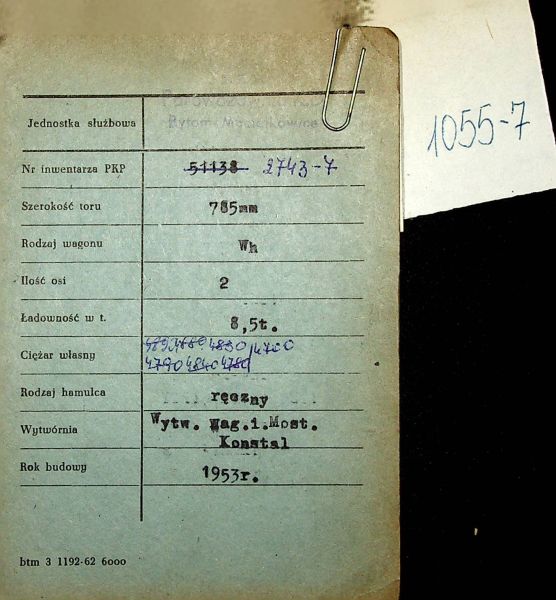 1055-7
Jednostka służbowa
Nr inwentarza PKP 51138 2743-7
Szerokość toru 785mm
Rodzaj wagonu Wh
Ilość osi 2
Ładowność w t. 8,5t.
Ciężar własny 4830/4700
4790 4840 4780
Rodzaj hamulca ręczny
Wytwórnia Wytw. Wag.i.Most.
Konstal
Rok budowy 1953r.
btm 3 1192-62 6000